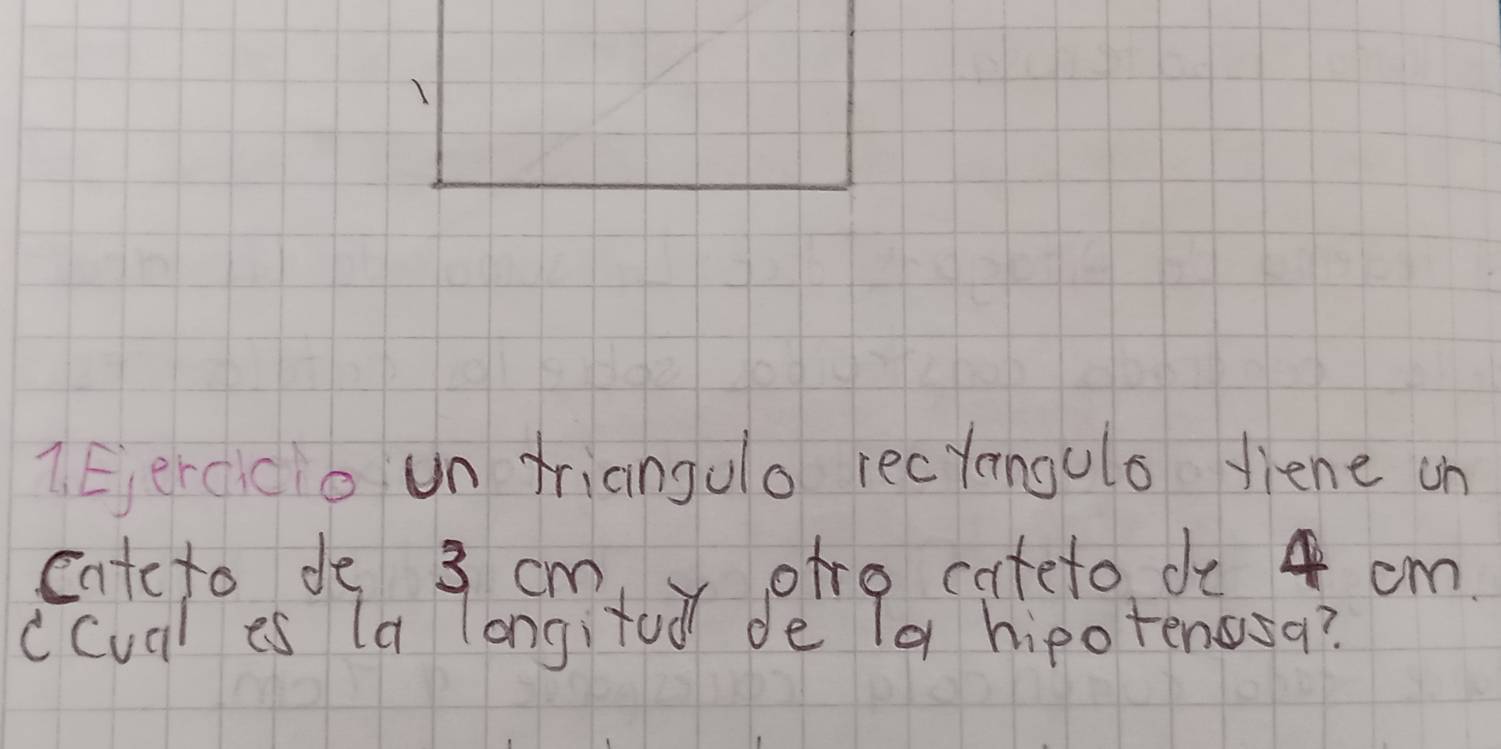 1. Ejercicio un triangulo rectangulo tiene un
cateto de 3 cm y otro cateto de 4 cm.
¿Cual es la longitud de la hipotenusa?